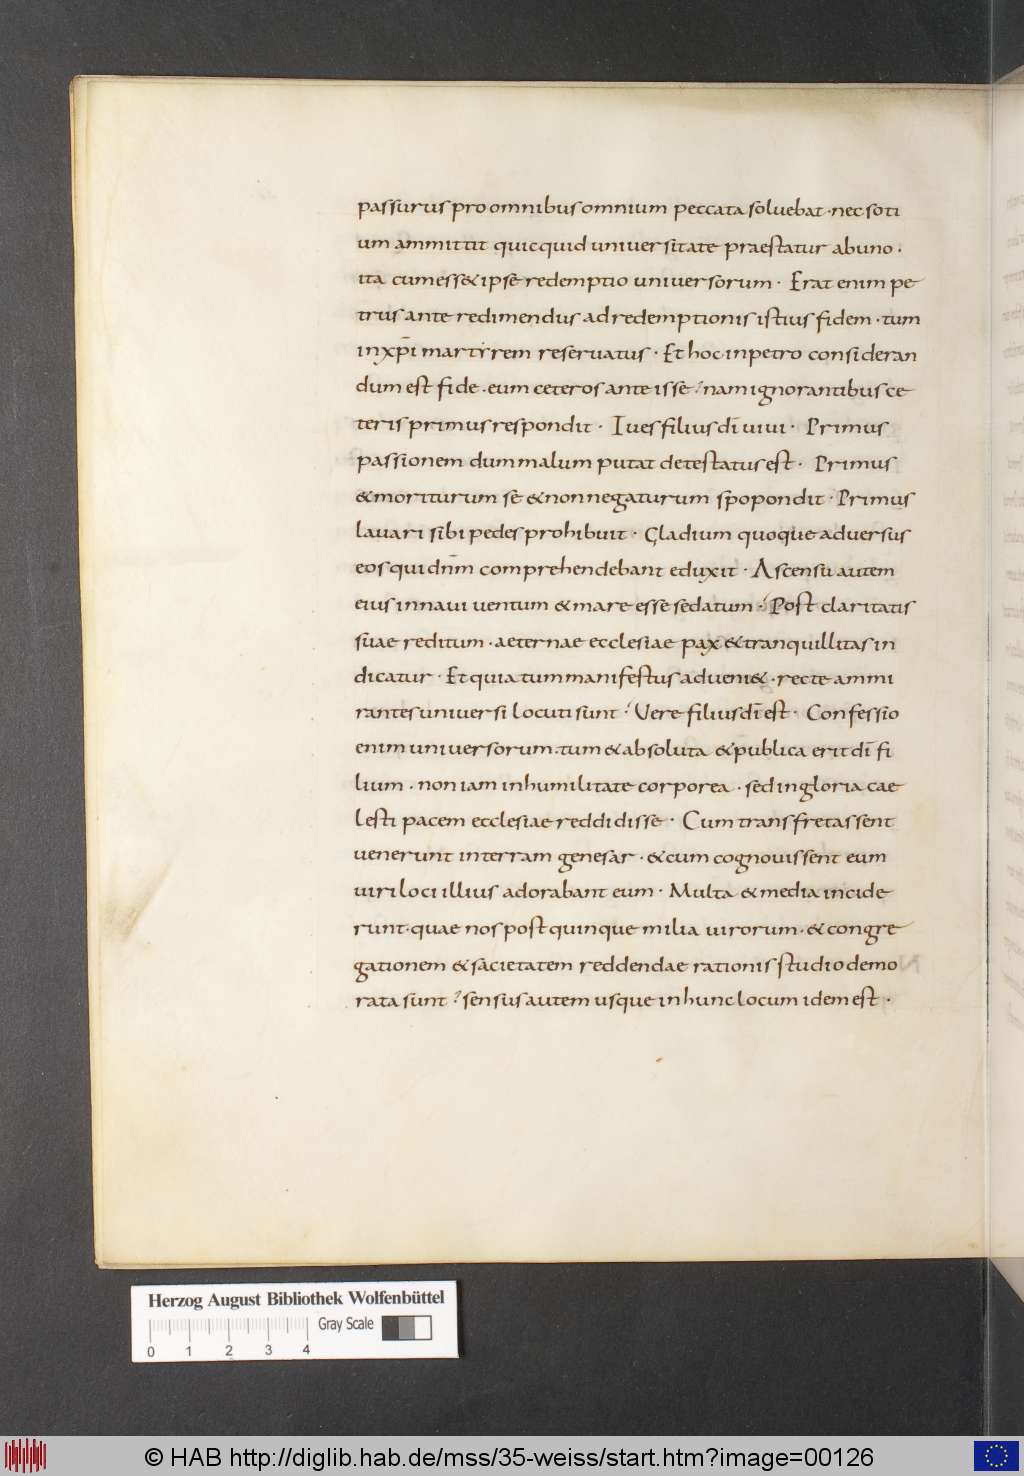 passurus pro omnibus omnium peccata soluebat · nec soti
um ammittit quicquid uniuersitate praestatur ab uno ·
ita cum ess& ipse redemptio uniuersorum · Erat enim pe
trus ante redimendus ad redemptionis istius fidem · tum
in xp̄i martyrem reseruatus · Et hoc in petro consideran
dum est fide · eum ceteros anteisse · nam ignorantibus ce
teris primus respondit · Tu es filius dī uiui · Primus
passionem dum malum putat detestatus est · Primus
& moriturum se & non negaturum spopondit · Primus
lauari sibi pedes prohibuit · Gladium quoque aduersus
eos qui dn̄m comprehendebant eduxit · Ascensu autem
eius in naui uentum & mare esse sedatum · Post claritatis
suae reditum · aeternae ecclesiae pax & tranquillitas in
dicatur · Et quia tum manifestus adueni& · recte ammi
rantes uniuersi locuti sunt · Vere filius dī est · Confessio
enim uniuersorum · tum & absoluta & publica erit dī fi
lium · non iam in humilitate corporea · sed in gloria cae
lesti pacem ecclesiae reddidisse · Cum transfretassent
uenerunt in terram genesar · & cum cognouissent eum
uiri loci illius adorabant eum · Multa & media incide
runt · quae nos post quinque milia uirorum · & congre
gationem & sacietatem reddendae rationis studio demo
rata sunt · sensus autem usque in hunc locum idem est ·
Herzog August Bibliothek Wolfenbüttel
Gray Scale
0 1 2 3 4
© HAB http://diglib.hab.de/mss/35-weiss/start.htm?image=00126